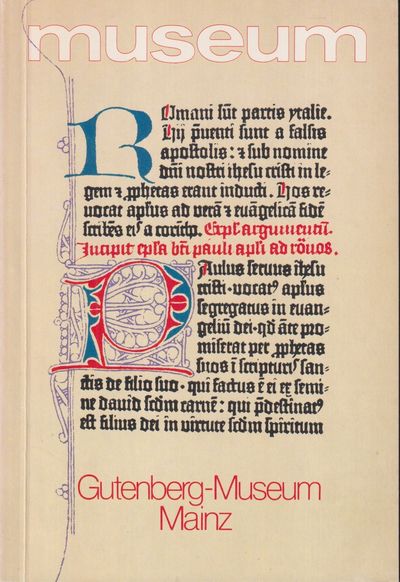 museum
ROmani sūt partis ytalie.
Hij p̄uenti sunt a falsis
apostolis: ⁊ sub nomine
dn̄i nostri ihesu cristi in le-
gem ⁊ ꝓphetas erant inducti. Hos re-
uocat apl̓us ad verā ⁊ euāgelicā fidē
scribēs eiꝰ a corīth̓. Expl̓ argumentū.
Incipit epl̓a bt̄i pauli apl̓i ad rōnos.
PAulus seruus ihesu
cristi · vocatꝰ apl̓us
segregatus in euan-
geliū dei · qd̄ āte pro-
miserat per ꝓphetas
suos ī scripturis san-
ctis de filio suo · qui factus ē ei ex semi-
ne dauid scdm̄ carnē: qui p̄destinatꝰ
est filius dei in virtute scdm̄ spiritum
Gutenberg-Museum
Mainz